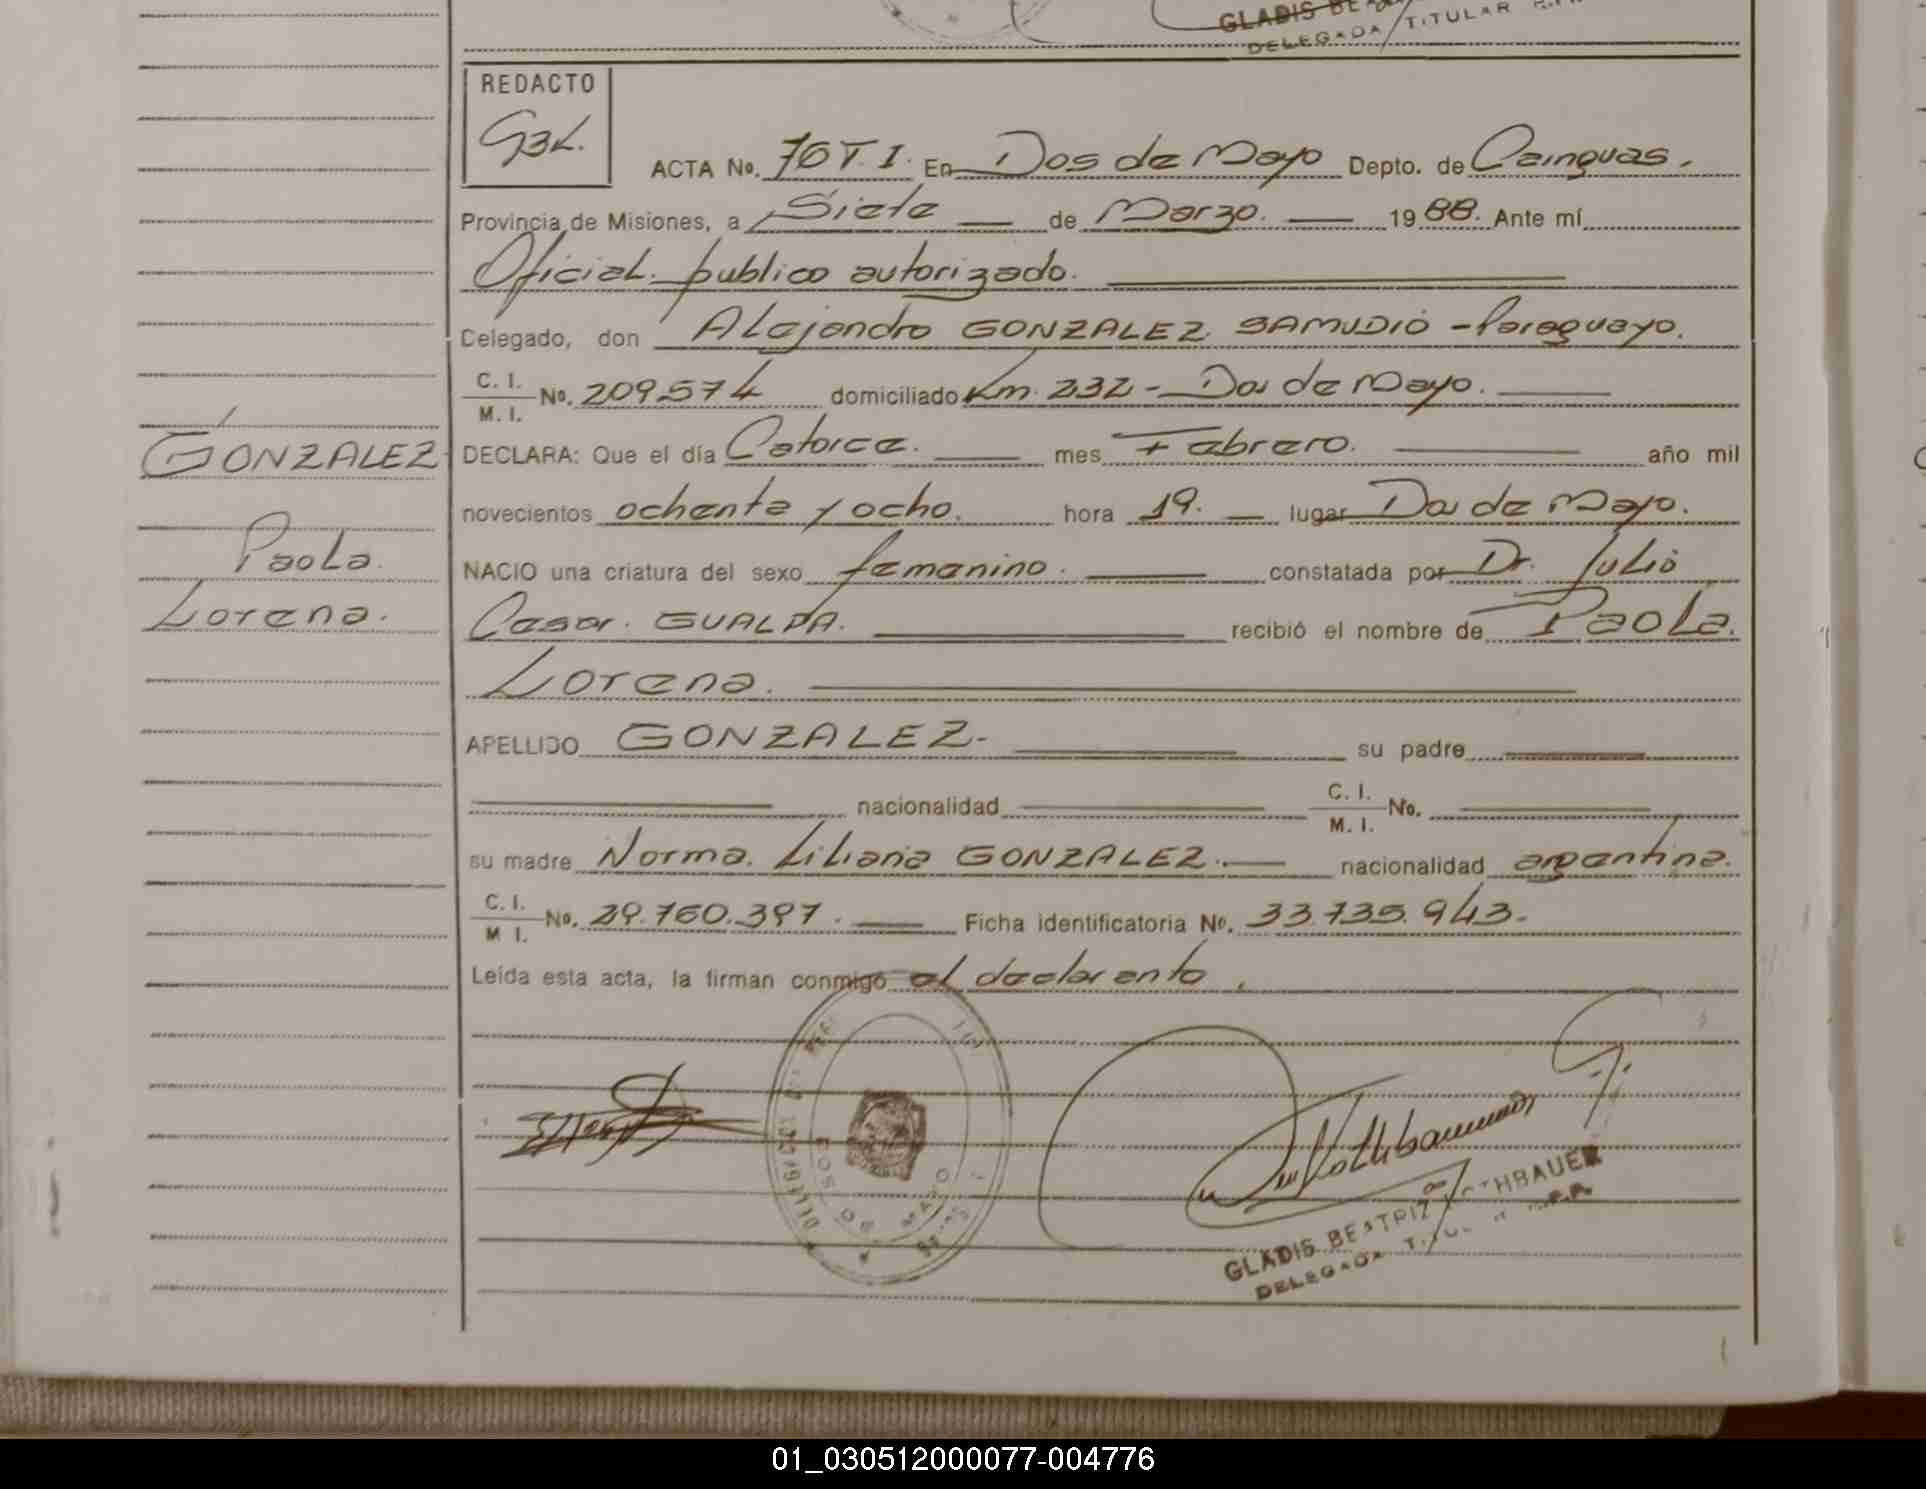 GLADIS BEA
DELEGADA TITULAR R.P.
REDACTO
GBL.
ACTA No. 76 T. I. En Dos de Mayo Depto. de Cainguas.
Provincia de Misiones, a Siete de Marzo. 1988. Ante mí
Oficial publico autorizado.
Delegado, don Alejandro GONZALEZ SAMUDIO - Paraguayo.
C. I.
M. I. No. 209574 domiciliado Km. 232 - Dos de Mayo.
GONZALEZ DECLARA: Que el día Catorce. mes Febrero. año mil
novecientos ochenta y ocho. hora 19. lugar Dos de Mayo.
Paola NACIO una criatura del sexo femenino. constatada por Dr. Julio
Lorena. Cesar. GUALPA. recibió el nombre de Paola.
Lorena.
APELLIDO GONZALEZ- su padre
nacionalidad C. I.
M. I. No.
su madre Norma. Liliana GONZALEZ. nacionalidad argentina.
C. I.
M I. No. 29.760.397. Ficha identificatoria No. 33.735.943.
Leída esta acta, la firman conmigo el declarante.
DOS DE MAYO
GLADIS BEATRIZ ROTHBAUER
DELEGADA TITULAR R.P.P.
01_030512000077-004776